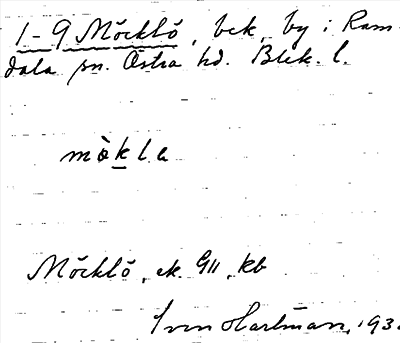 1-9 Möcklö, bek. by i Ram-
dala sn. Östra hd. Blek. l.
mòkla
Möcklö, ek. 911, kb
Sven Hartman, 193